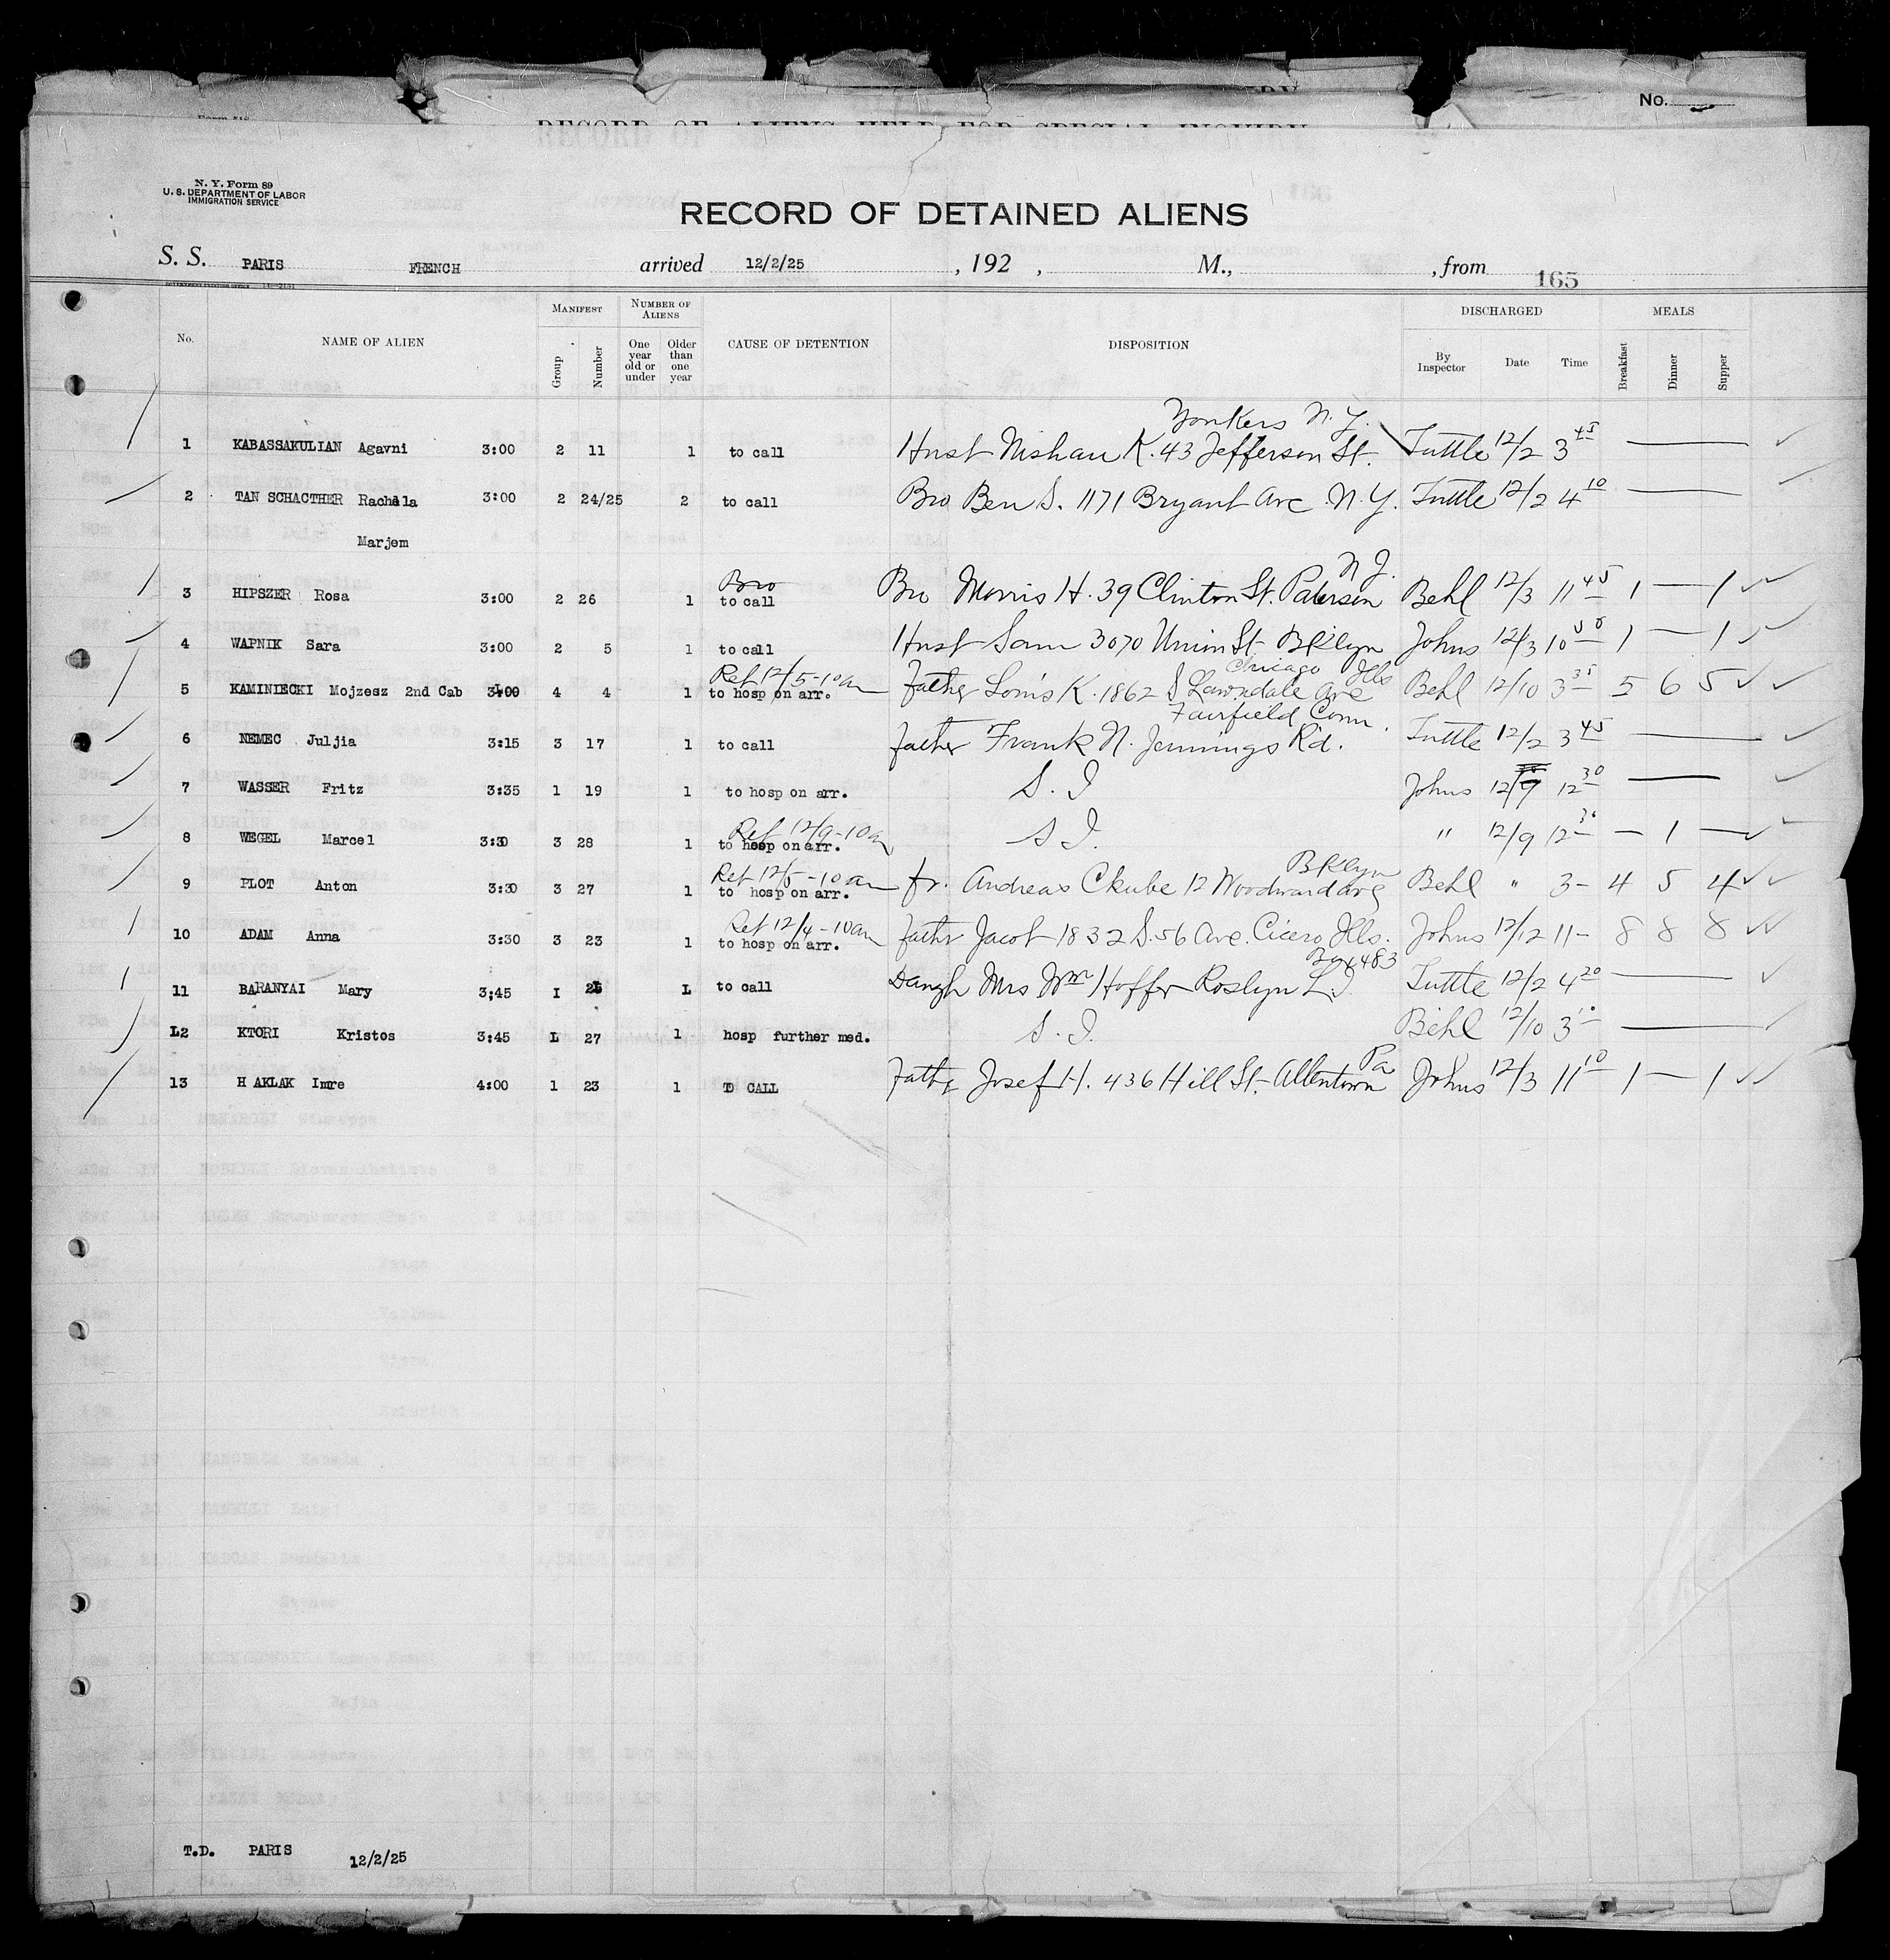 No.
RECORD OF ALIENS HELD FOR SPECIAL INQUIRY
N. Y. Form 89
U. S. DEPARTMENT OF LABOR
IMMIGRATION SERVICE
RECORD OF DETAINED ALIENS
S. S. PARIS FRENCH arrived 12/2/25 , 192 , M., , from 165
No. NAME OF ALIEN MANIFEST Group Number NUMBER OF ALIENS One year old or under Older than one year CAUSE OF DETENTION DISPOSITION DISCHARGED By Inspector Date Time MEALS Breakfast Dinner Supper
Yonkers N.Y.
1 KABASSAKULIAN Agavni 3:00 2 11 1 to call Husb Nishan K. 43 Jefferson St. Tuttle 12/2 3 45 —
2 TAN SCHACTHER Rachela 3:00 2 24/25 2 to call Bro Ben S. 1171 Bryant Ave N.Y. Tuttle 12/2 4 10 —
Marjem
Bro N.J.
3 HIPSZER Rosa 3:00 2 26 1 to call Bro Morris H. 39 Clinton St. Paterson Behl 12/3 11 45 1 — 1
4 WAPNIK Sara 3:00 2 5 1 to call Husb Sam 3070 Union St. Bklyn Johns 12/3 10 50 1 — 1
Ret 12/5-10am Chicago Ills
5 KAMINIECKI Mojzesz 2nd Cab 3:00 4 4 1 to hosp on arr. Father Louis K. 1862 S Lawndale Ave Behl 12/10 3 35 5 6 5
Fairfield Conn.
6 NEMEC Juljia 3:15 3 17 1 to call father Frank N. Jennings Rd. Tuttle 12/2 3 45 —
7 WASSER Fritz 3:35 1 19 1 to hosp on arr. S. I Johns 12/9 12 30 —
Ret 12/9-10a
8 WEGEL Marcel 3:30 3 28 1 to hosp on arr. S I. " 12/9 12 30 — 1 —
Ret 12/5-10am Bklyn
9 PLOT Anton 3:30 3 27 1 to hosp on arr. fr. Andreas Ckube 12 Woodward ave Behl " 3- 4 5 4
Ret 12/4-10am
10 ADAM Anna 3:30 3 23 1 to hosp on arr. father Jacob 1832 S. 56 Ave. Cicero Ills. Johns 12/12 11- 8 8 8
Box 483
11 BARANYAI Mary 3;45 I 25 L to call Daugh Mrs Wm Hoffer Roslyn L.I. Tuttle 12/2 4 20 —
L2 KTORI Kristos 3:45 L 27 1 hosp further med. S. I. Behl 12/10 3 10 —
Pa
13 H AKLAK Imre 4:00 1 23 1 TO CALL Father Josef H. 436 Hill St. Allentown Johns 12/3 11 10 1 — 1
T.D. PARIS 12/2/25